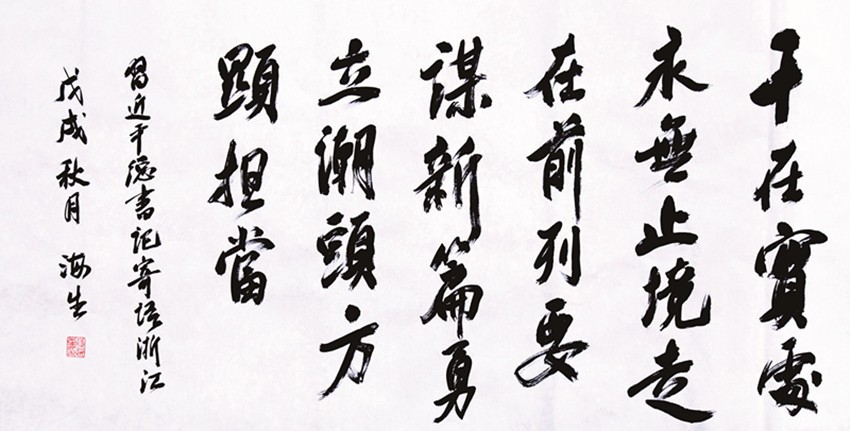 干在實處
永無止境走
在前列要
謀新篇勇
立潮頭方
顯担當
習近平總書記寄語浙江
戊戌秋月 海生